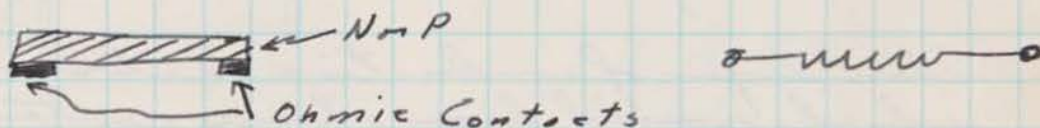 N or P
Ohmic Contacts